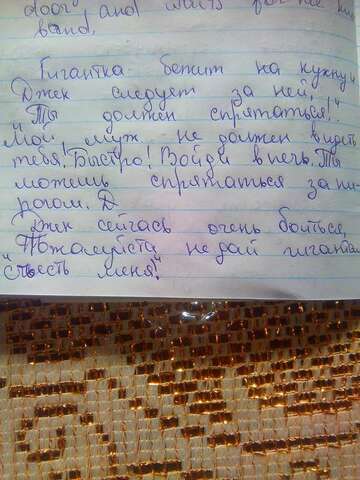 door and waits for her hus
band.
Гигантка бежит на кухню.
Джек следует за ней.
"Ты должен спрятаться!"
Мой муж не должен видеть
тебя! Быстро! Войди в печь. Ты
можешь спрятаться за пи
рогом. Д
Джек сейчась очень боиться,
Пожалуйста не дай гигантам
"съесть меня!"